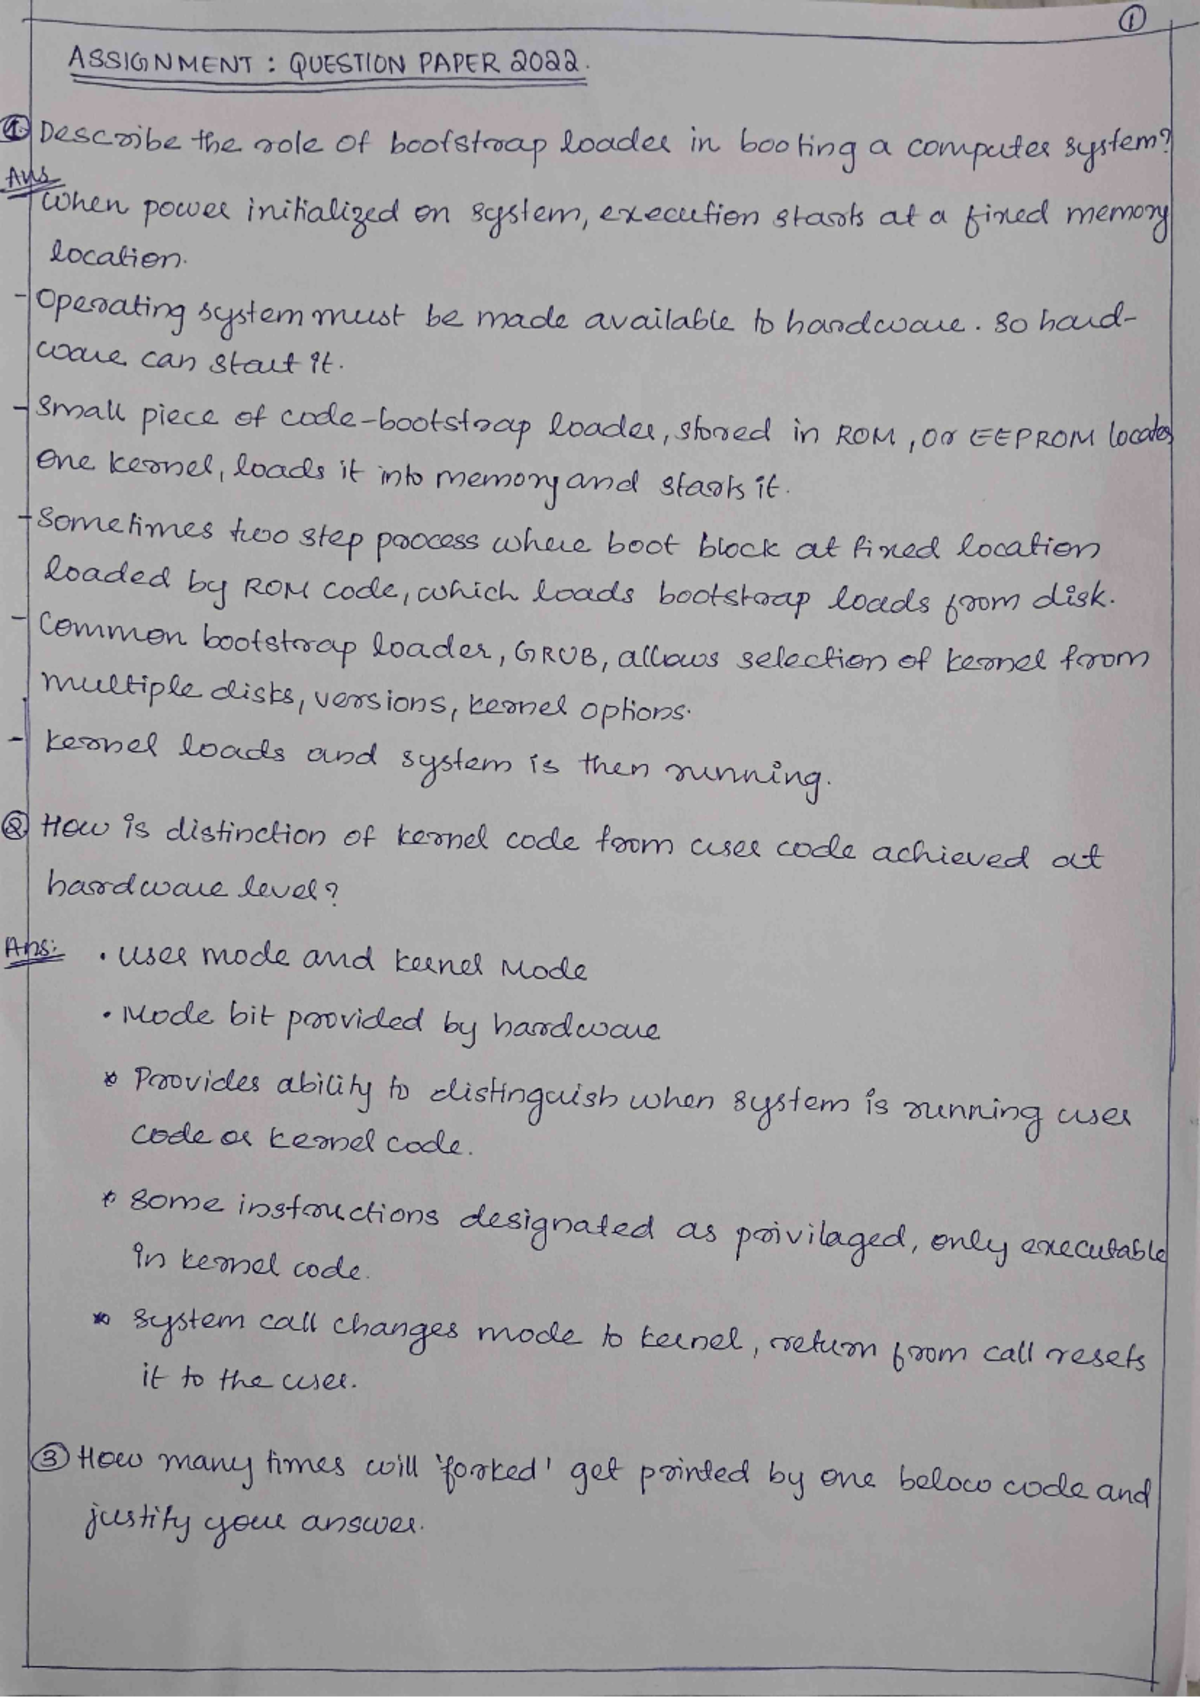 ①
ASSIGNMENT : QUESTION PAPER 2022.
① Describe the role of bootstrap loader in booting a computer system?
Ans
When power initialized on system, execution starts at a fixed memory
location.
- Operating system must be made available to hardware. So hard-
ware can start it.
- Small piece of code-bootstrap loader, stored in ROM, or EEPROM locates
one kernel, loads it into memory and starts it.
- Sometimes two step process where boot block at fixed location
loaded by ROM code, which loads bootstrap loads from disk.
- Common bootstrap loader, GRUB, allows selection of kernel from
multiple disks, versions, kernel options.
- kernel loads and system is then running.
② How is distinction of kernel code from user code achieved at
hardware level?
Ans: • User mode and kernel Mode
• Mode bit provided by hardware
* Provides ability to distinguish when system is running user
code or kernel code.
* Some instructions designated as privilaged, only executable
in kernel code.
* System call changes mode to kernel, return from call resets
it to the user.
③ How many times will 'forked' get printed by one below code and
justify your answer.